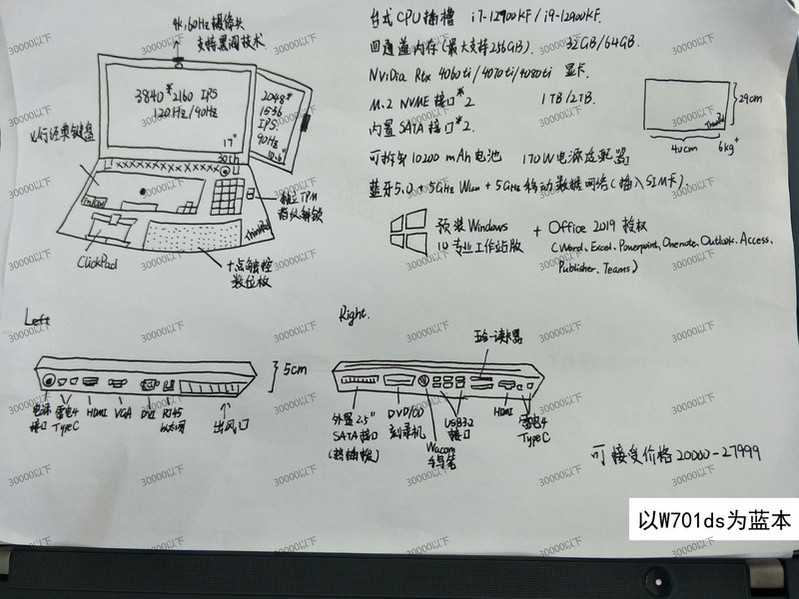 4k,60Hz摄像头
支持黑阈技术
3840*2160 IPS
120Hz/90Hz
17"
2048*
1536
IPS.
90Hz
10.6"
七行经典键盘
ThinkPad
ClickPad
独立TPM
指纹解锁
ThinkPad
十点触控
数位板
台式CPU插槽 i7-12900KF/i9-12900KF.
四通道内存(最大支持256GB). 32GB/64GB.
Nvidia Rtx 4060ti/4070ti/4080ti 显卡.
M.2 NVME 接口*2 1TB/2TB.
内置SATA接口*2.
可拆卸10200mAh电池 170W电源适配器
蓝牙5.0+5GHz Wlan+5GHz移动数据网络(插入SIM卡)
ThinkPad
29cm
40cm
6kg+
预装Windows
10专业工作站版
+ Office 2019 授权
(Word、Excel、Powerpoint、Onenote、Outlook、Access、
Publisher、Teams)
Left
5cm
电源
接口
雷电4
TypeC
HDMI
VGA
DVI
RJ45
以太网
出风口
Right.
五合一读卡器
外置2.5"
SATA接口
(热插拔)
DVD/CD
刻录机
Wacom
手写笔
USB3.2
接口
HDMI
雷电4
TypeC
可接受价格20000-27999
以W701ds为蓝本
30000以下